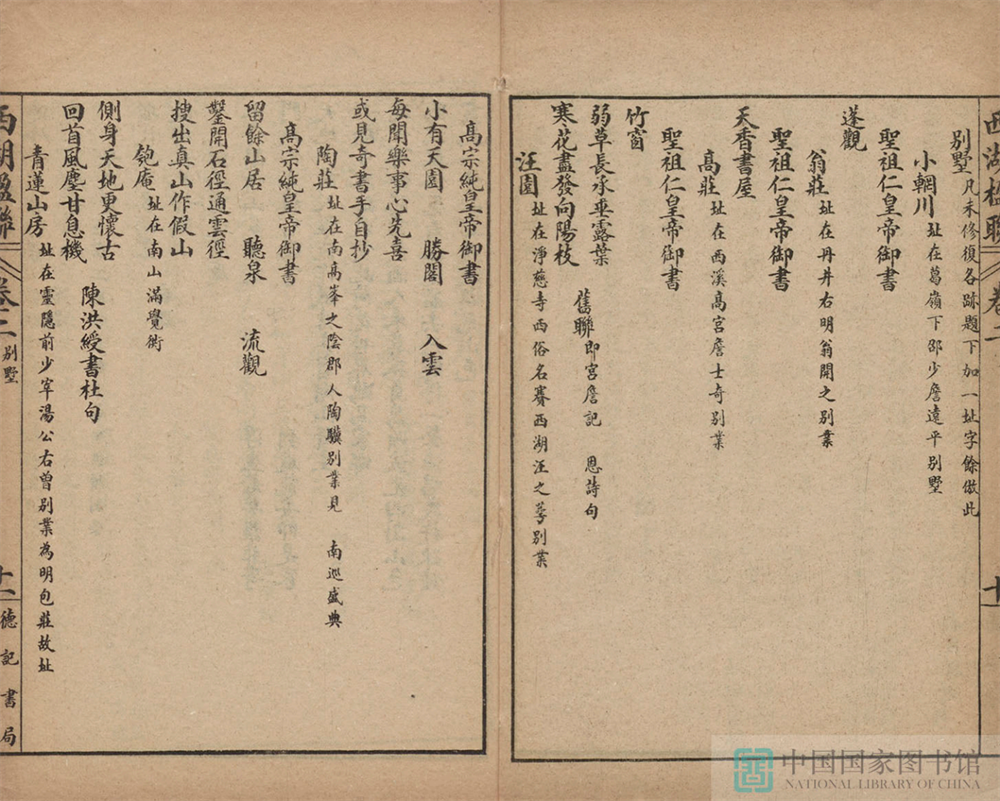 西湖楹聯 卷三 十
別墅凡未修復各跡題下加一址字餘倣此
小輞川 址在葛嶺下邵少詹遠平別墅
聖祖仁皇帝御書
邃觀
翁莊 址在丹井右明翁開之別業
聖祖仁皇帝御書
天香書屋
高莊 址在西溪高宮詹士奇別業
聖祖仁皇帝御書
竹窗
弱草長承垂露葉
寒花盡發向陽枝 舊聯即宮詹記 恩詩句
汪園 址在淨慈寺西俗名賽西湖汪之萼別業
高宗純皇帝御書
小有天園 勝閣 入雲
每聞樂事心先喜
或見奇書手自抄
陶莊 址在南高峯之陰郡人陶驥別業見 南巡盛典
高宗純皇帝御書
留餘山居 聽泉 流觀
鑿開石徑通雲徑
搜出真山作假山
匏庵 址在南山滿覺衖
側身天地更懷古
回首風塵甘息機 陳洪綬書杜句
青蓮山房 址在靈隱前少宰湯公右曾別業為明包莊故址
西湖楹聯 卷三 別墅 十一 德記書局
中国国家图书馆
NATIONAL LIBRARY OF CHINA